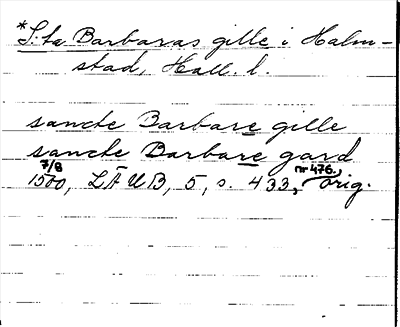 *S:ta Barbaras gille i Halm-
stad, Hall. l.
sancte Barbare gille
sancte Barbare gard
7/8
1500, LÄUB, 5, s. 433, nr 476. orig.